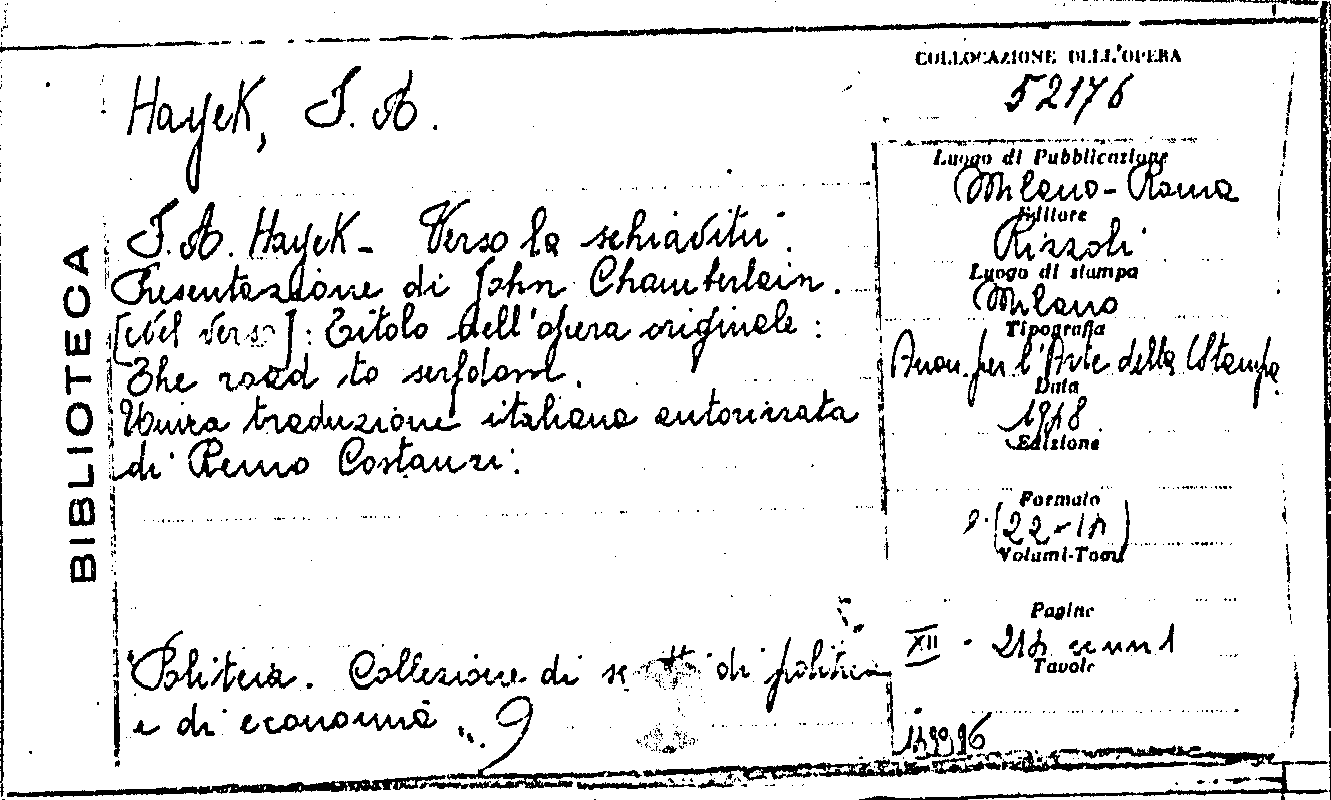 COLLOCAZIONE DELL'OPERA
52176
Hayek, F. A.
F. A. Hayek - Verso la schiavitù.
Presentazione di John Chamberlain.
[Nel verso]: Titolo dell'opera originale:
The road to serfdom.
Unica traduzione italiana autorizzata
di Remo Costanzi.
"Politeia. Collezione di di politica
e di economia". 9
BIBLIOTECA
Luogo di Pubblicazione
Milano - Roma
Editore
Rizzoli
Luogo di stampa
Milano
Tipografia
Anon. per l'Arte della Stampa
Data
1948
Edizione
Formato
Volumi-Tomi
Pagine
XII -
Tavole